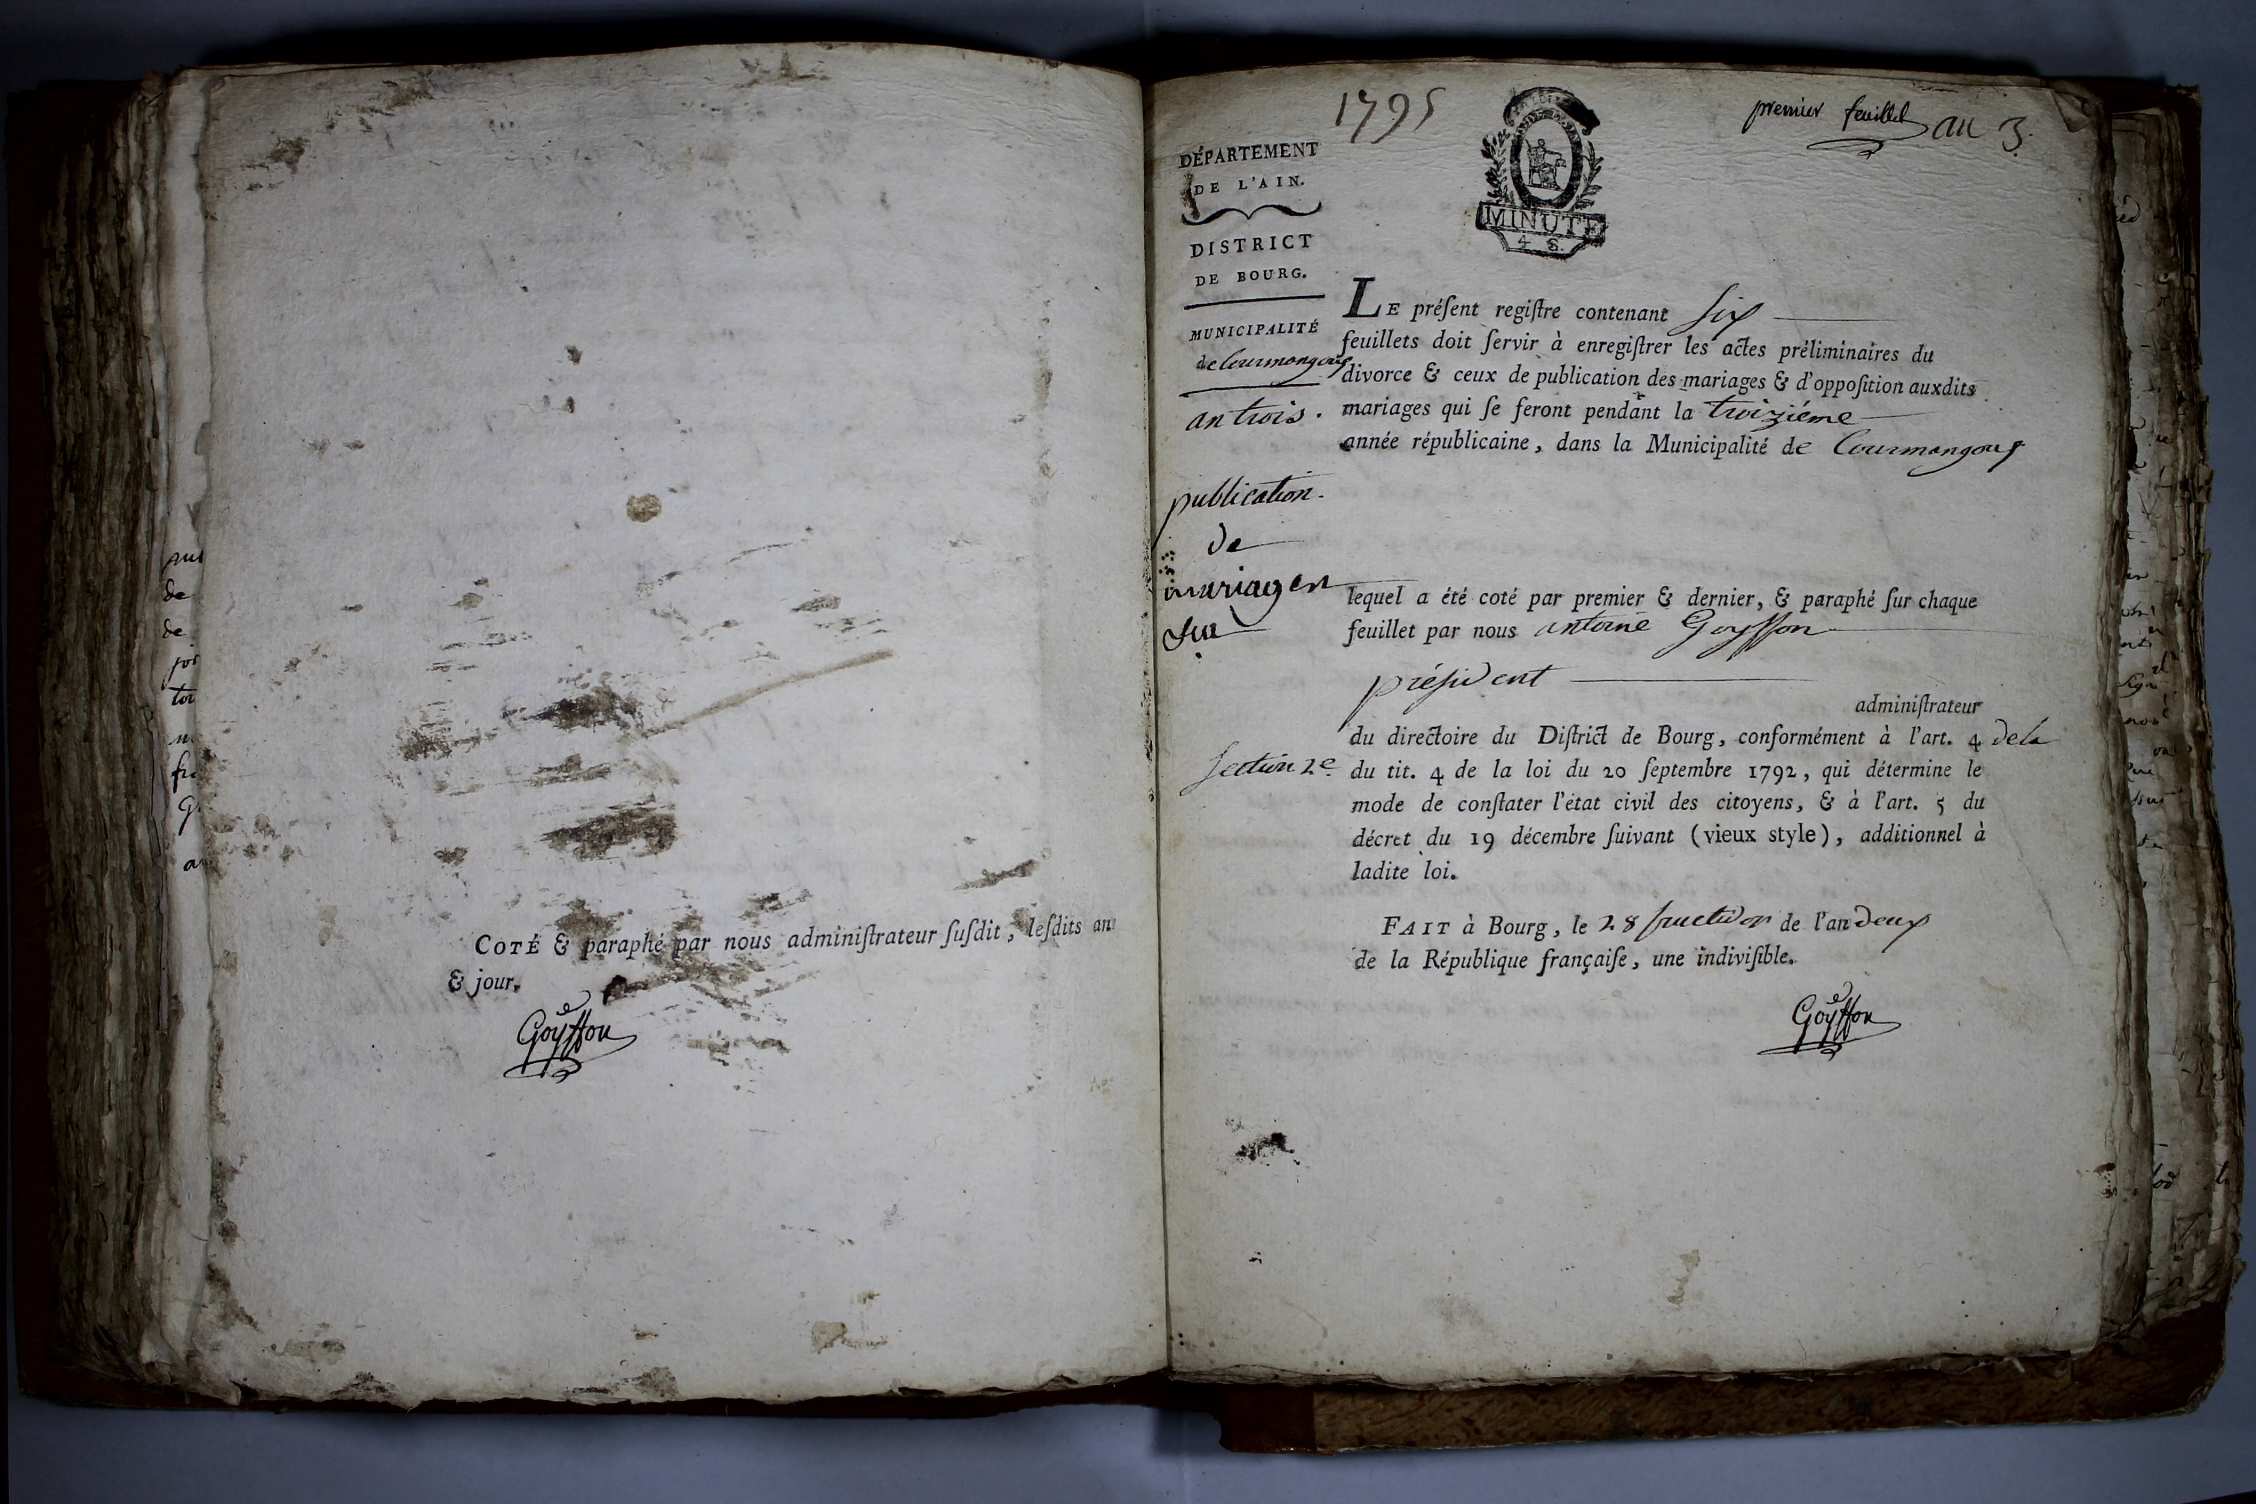 COTÉ & paraphé par nous administrateur susdit, lesdits an
& jour.
Goyffon
1795
premier feuillet
an 3.
DÉPARTEMENT
DE L'AIN.
DISTRICT
DE BOURG.
MUNICIPALITÉ
de Courmangoux
an trois.
MINUTE
4 S.
LE préſent regiſtre contenant six
feuillets doit ſervir à enregiſtrer les actes préliminaires du
divorce & ceux de publication des mariages & d'oppoſition auxdits
mariages qui ſe feront pendant la troiziéme
année républicaine, dans la Municipalité de Courmangoux
publication
de
mariages
lequel a été coté par premier & dernier, & paraphé ſur chaque
feuillet par nous antoine Goyffon
président
adminiſtrateur
du directoire du Diſtrict de Bourg, conformément à l'art. 4 de la
Section 2e
du tit. 4 de la loi du 20 ſeptembre 1792, qui détermine le
mode de conſtater l'état civil des citoyens, & à l'art. 5 du
décret du 19 décembre ſuivant (vieux style), additionnel à
ladite loi.
FAIT à Bourg, le 28 fructidor de l'an deux
de la République françaiſe, une indiviſible.
Goyffon